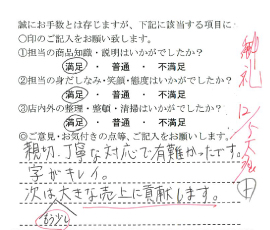 誠にお手数とは存じますが、下記に該当する項目に
〇印のご記入をお願い致します。
①担当の商品知識・説明はいかがでしたか？
満足 ・ 普通 ・ 不満足
②担当の身だしなみ・笑顔・態度はいかがでしたか？
満足 ・ 普通 ・ 不満足
③店内外の整理・整頓・清掃はいかがでしたか？
満足 ・ 普通 ・ 不満足
◎ご意見・お気付きの点等、ご記入をお願いします。
親切、丁寧な対応で有難かったです。
字がキレイ。
次は大きな売上に貢献します。
もう少し
御礼